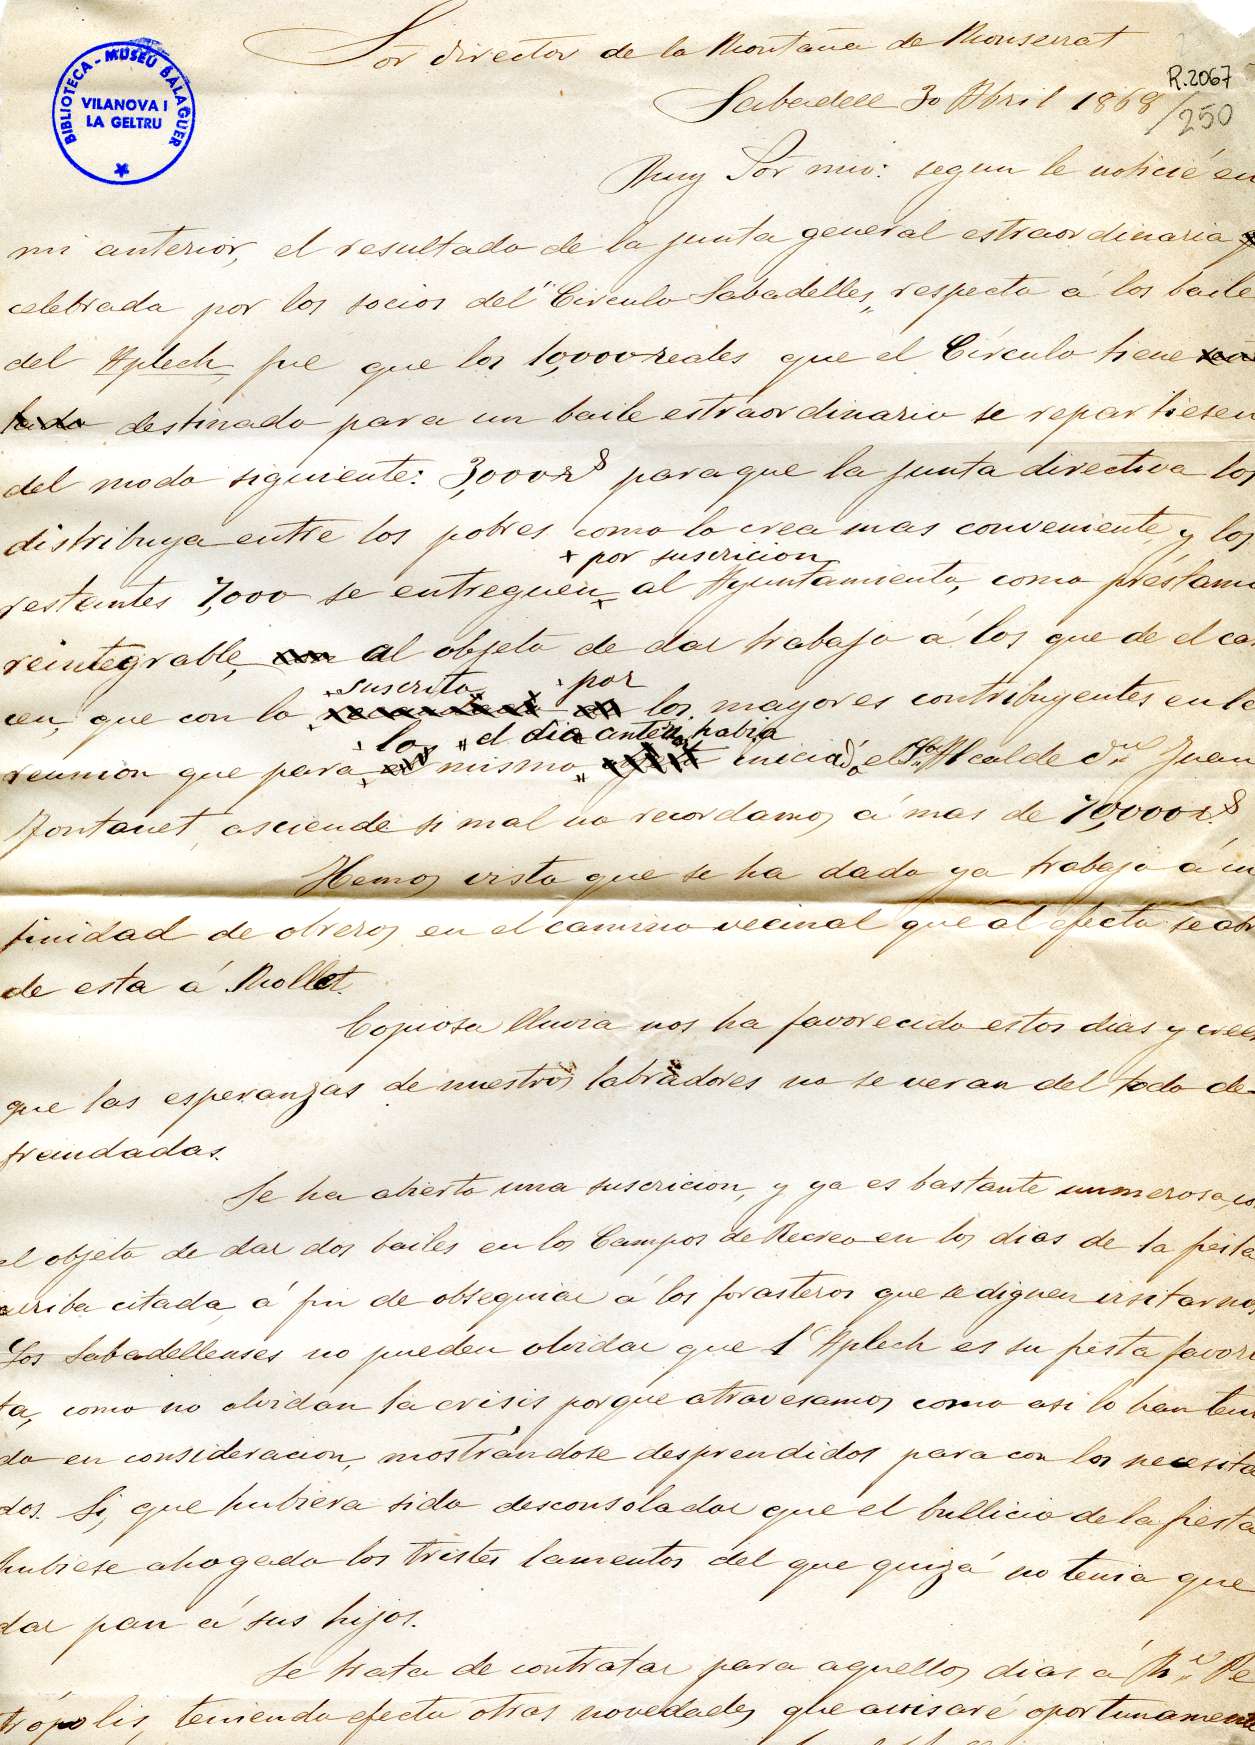 Sor director de la Montaña de Monserrat
BIBLIOTECA - MUSEU BALAGUER
VILANOVA I
LA GELTRU
R.2067
/250
Sabadell 30 Abril 1868
Muy Sor mio: segun le noticié en
mi anterior, el resultado de la junta general estraordinaria
celebrada por los socios del "Circulo Sabadelles„ respecto á los baile
del Aplech, fue que los 10,000 reales que el Círculo tiene
destinado para un baile estraordinario se repartiesen
del modo siguiente: 3,000 rs para que la junta directiva los
distribuya entre los pobres como lo crea mas conveniente y los
× por suscricion
restantes 7,000 se entreguen × al Ayuntamiento, como préstamo
reintegrable, al objeto de dar trabajo á los que de el ca-
suscrito por
cen, que con lo los mayores contribuyentes en la
lo el dia anterr habia
reunion que para mismo iniciado el Sr Alcalde dn Juan
Fontanet, asciende si mal no recordamos á mas de 70,000 rs
Hemos visto que se ha dado ya trabajo á in
finidad de obreros en el camino vecinal que al efecto se abr
de esta á Mollet.
Copiosa lluvia nos ha favorecido estos dias y cree
que las esperanzas de nuestros labradores no se veran del todo de-
fraudadas.
Se ha abierto una suscricion, y ya es bastante numerosa, co
el objeto de dar dos bailes en los Campos de Recreo en los dias de la fiesta
arriba citada, á fin de obsequiar á los forasteros que se dignen visitarnos
Los Sabadellenses no pueden olvidar que l'Aplech es su fiesta favori
ta, como no olvidan la crisis porque atravesamos como asi lo han teni
do en consideracion, mostrándose desprendidos para con los necesita
dos. Si, que hubiera sido desconsolador que el bullicio de la fiesta
hubiese ahogado los tristes lamentos del que quizá no tenia que
dar pan á sus hijos.
Se trata de contratar para aquellos dias á Mr Pe
trópolis, teniendo efecto otras novedades, que avisaré oportunamente